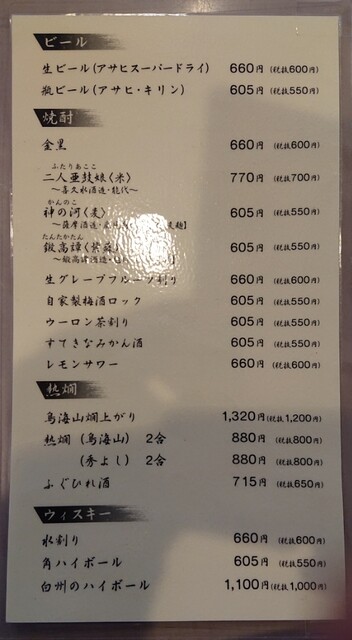 ビール
生ビール(アサヒスーパードライ) 660円 (税抜600円)
瓶ビール(アサヒ・キリン) 605円 (税抜550円)
焼酎
金黒 660円 (税抜600円)
ふたりあここ
二人亜鼓娘〈米〉 770円 (税抜700円)
〜喜久水酒造・能代〜
かんのこ
神の河〈麦〉 605円 (税抜550円)
〜薩摩酒造・
たんたかたん
鍛高譚〈紫蘇〉 605円 (税抜550円)
〜鍛高譚酒造・
生グレープフルーツ割り 660円 (税抜600円)
自家製梅酒ロック 605円 (税抜550円)
ウーロン茶割り 605円 (税抜550円)
すてきなみかん酒 605円 (税抜550円)
レモンサワー 660円 (税抜600円)
熱燗
鳥海山燗上がり 1,320円 (税抜1,200円)
熱燗 (鳥海山) 2合 880円 (税抜800円)
(秀よし) 2合 880円 (税抜800円)
ふぐひれ酒 715円 (税抜650円)
ウィスキー
水割り 660円 (税抜600円)
角ハイボール 605円 (税抜550円)
白州のハイボール 1,100円 (税抜1,000円)